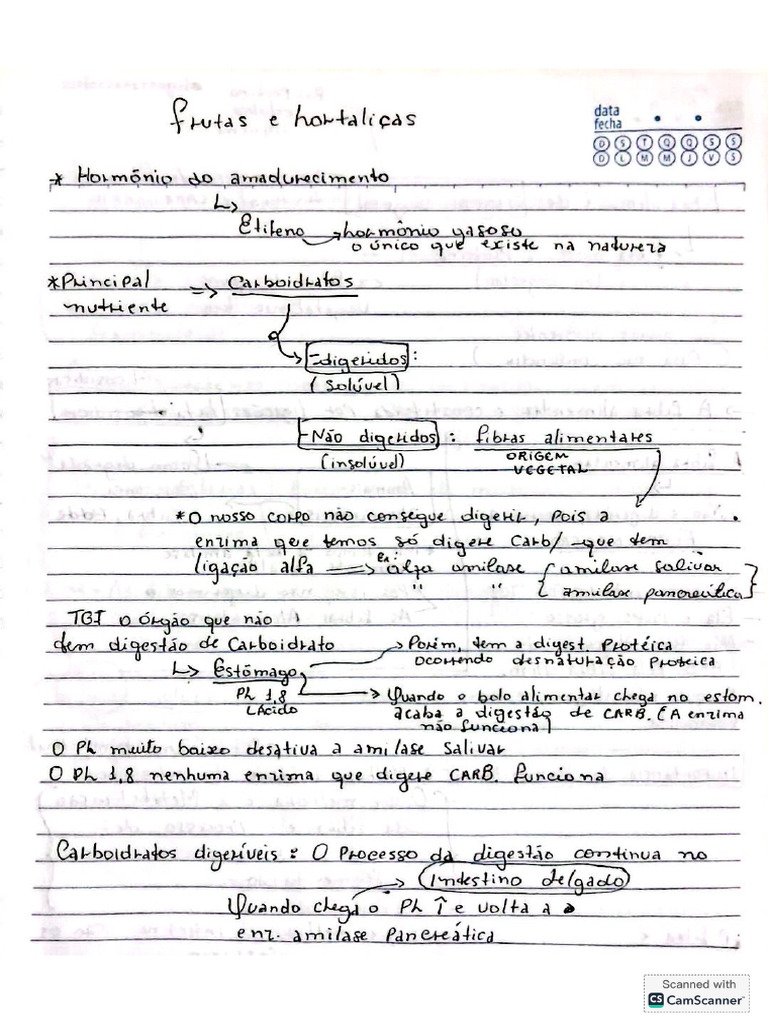 Frutas e hortaliças
data
fecha
D S T Q Q S S
D L M M J V S
* Hormônio do amadurecimento
↳ Etileno → hormônio gasoso
o único que existe na natureza
*Principal
nutriente => Carboidratos
→ -digeridos :
(solúvel)
-Não digeridos : fibras alimentares
(insolúvel) ORIGEM
VEGETAL
*O nosso corpo não consegue digerir, pois a
enzima que temos só digere Carb/ -que tem
ligação alfa => Ex.: alfa amilase { amilase salivar }
" " { amilase pancreática }
TGI o órgão que não
tem digestão de Carboidrato → Porém, tem a digest. Protéica
↳ Estômago ocorrendo desnaturação proteica
Ph 1,8 → Quando o bolo alimentar chega no estom.
LÁcido acaba a digestão de CARB. (A enzima
não funciona)
O Ph muito baixo desativa a amilase Salivar
O Ph 1,8 nenhuma enzima que digere CARB. funciona
Carboidratos digeríveis : O Processo da digestão continua no
→ (Intestino delgado)
Quando chega o Ph ↑ e volta a
enz. amilase Pancreática
Scanned with
CS CamScanner